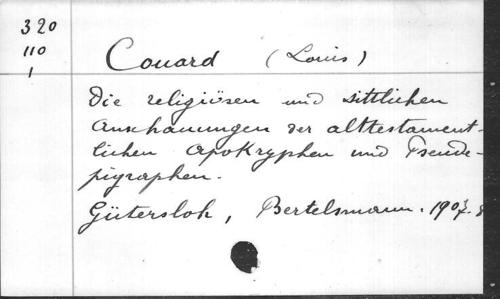 320
110
1
Couard (Louis)
Die religiösen und sittlichen
Anschauungen der alttestament-
lichen Apokryphen und Pseude-
pigraphen.
Gütersloh, Bertelsmann. 1907. 8